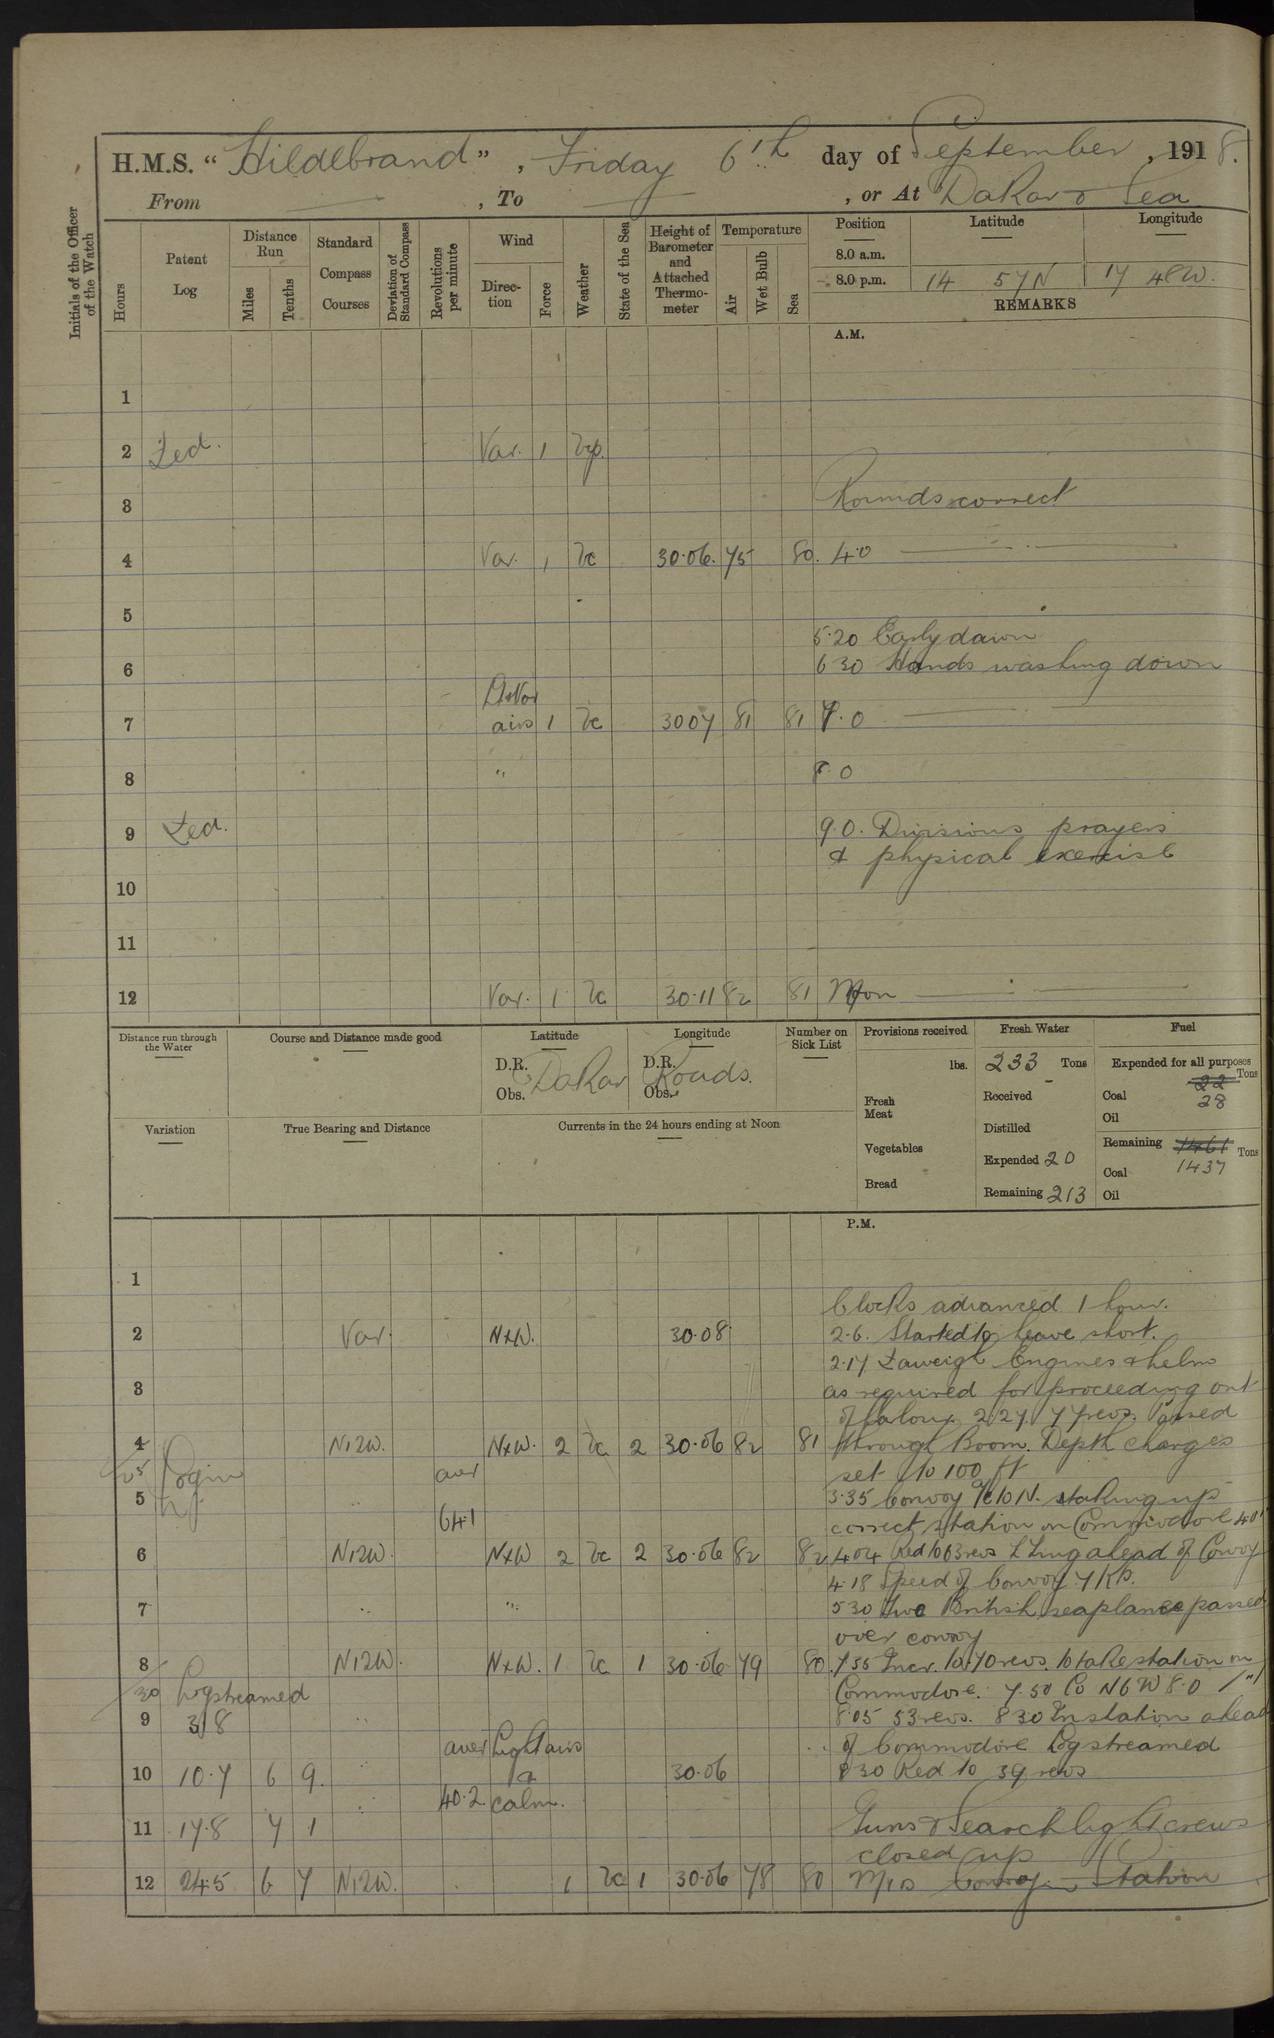 H.M.S. "Hildebrand", Friday 6th day of September, 1918.
From — , To — , or At Dakar & Sea
Initials of the Officer of the Watch
Hours
Patent Log
Distance Run
Miles
Tenths
Standard Compass Courses
Deviation of Standard Compass
Revolutions per minute
Wind
Direction
Force
Weather
State of the Sea
Height of Barometer and Attached Thermometer
Temperature
Air
Wet Bulb
Sea
Position Latitude Longitude
8.0 a.m.
8.0 p.m. 14 57N 17 48W.
REMARKS
A.M.
1
2 Var. 1
3 Rounds correct
4 Var. 1 bc 30.06. 75 80. 4.0
5
5.20 Early dawn
6 6 30 Hands washing down
7 airs 1 bc 3007 81 81 7.0
8 " 8.0
9 9.0. Divisions prayers
& physical exercise
10
11
12 Var. 1 bc 30.11 82 81 Noon
Distance run through the Water
Course and Distance made good
Latitude
D.R.
Obs. Dakar
Longitude
D.R.
Obs. Roads.
Number on Sick List
Provisions received
lbs.
Fresh Meat
Vegetables
Bread
Fresh Water
233 Tons
Received
Distilled
Expended 20
Remaining 213
Fuel
Expended for all purposes
22 Tons
Coal 28
Oil
Remaining 1461 Tons
Coal 1437
Oil
Variation
True Bearing and Distance
Currents in the 24 hours ending at Noon
P.M.
1
Clocks advanced 1 hour.
2 Var. NxW. 30.08 2.6. Started to heave short.
2.17 Engines & helm
3 as required for proceeding out
2.27 77 revs. Passed
4 N12W. NxW. 2 bc 2 30.06 82 81 through Boom. Depth charges
25 Log in aver set to 100 ft
5 " 3.35 Convoy a/c to N. taking up
641 correct station on Commodore
6 N12W. NxW 2 bc 2 30.06 82 82 4.04 Red to 63 revs ahead of Convoy
4.18 Speed of Convoy 7 Kts.
7 " " 5 30 Two British seaplanes passed
over convoy
8 N12W. NxW. 1 bc 1 30.06 79 80 7.35 Incr. to 70 revs. to take station on
30 Log streamed Commodore. 7.50 Co N6W 8.0
9 3.8 " 8.05 53 revs. 8 30 In station ahead
aver Light airs of Commodore Log streamed
10 10.7 6 9. " 30.06 8 30 Red to 39 revs
40.2 calm.
11 17.8 7 1 Guns & Searchlight crews
closed up
12 24.5 6 7 N12W. 1 bc 1 30.06 78 80 Convoy in Station